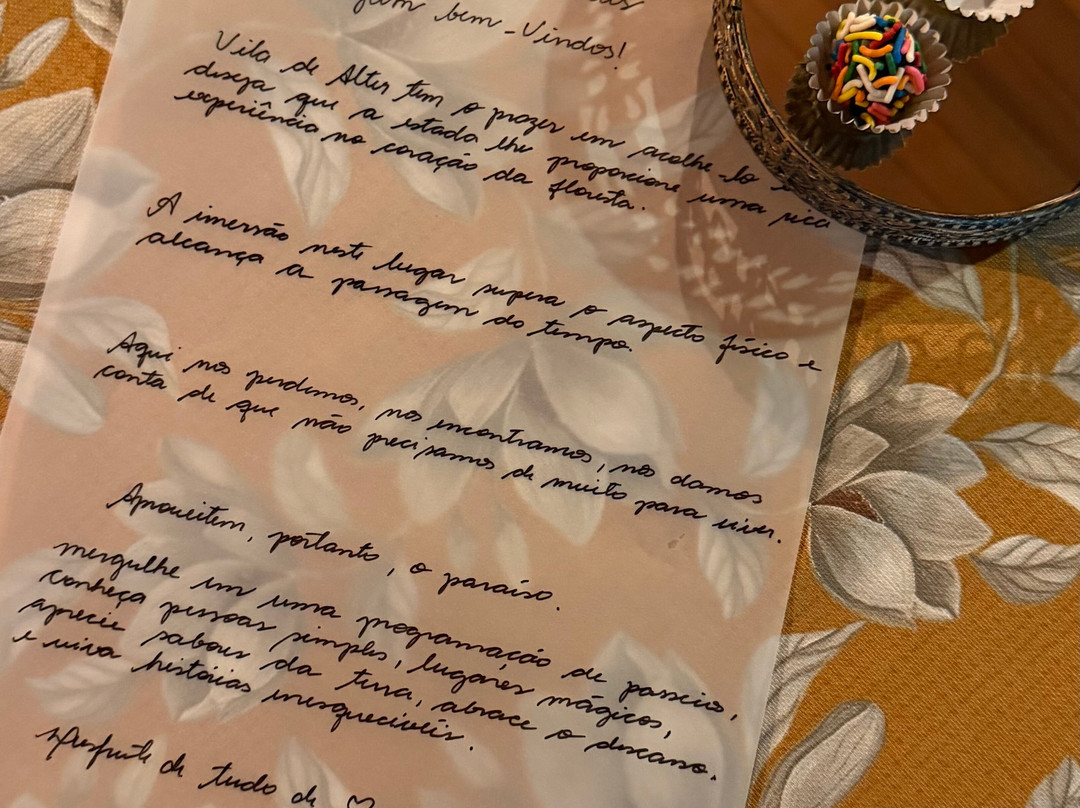 bem-Vindos!
Vila de Alter tem o prazer em acolhe-lo e
deseja que a estada lhe proporcione uma rica
experiência no coração da floresta.
A imersão neste lugar supera o aspecto físico e
alcança a passagem do tempo.
Aqui nos perdemos, nos encontramos, nos damos
conta de que não precisamos de muito para viver.
Aproveitem, portanto, o paraíso.
mergulhe em uma programação de passeios,
conheça pessoas simples, lugares mágicos,
aprecie sabores da terra, abrace o descanso.
e viva histórias inesquecíveis.
Desfrute de tudo de ♡